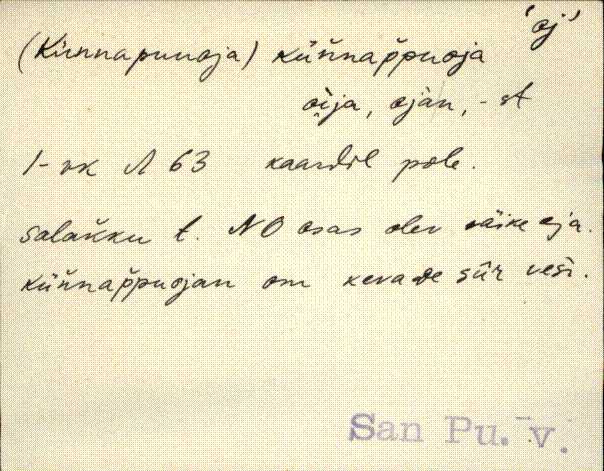 (Künnapuuoja) küňnäp̌puoja 'oj'
oi̬ja, ojàn, -st
1-vk Λ 63 kaardil pole.
Salaǩku t. NO osas olev väike oja.
küňnap̌puojan om kevade sūr veśi.
San Pu.-v.